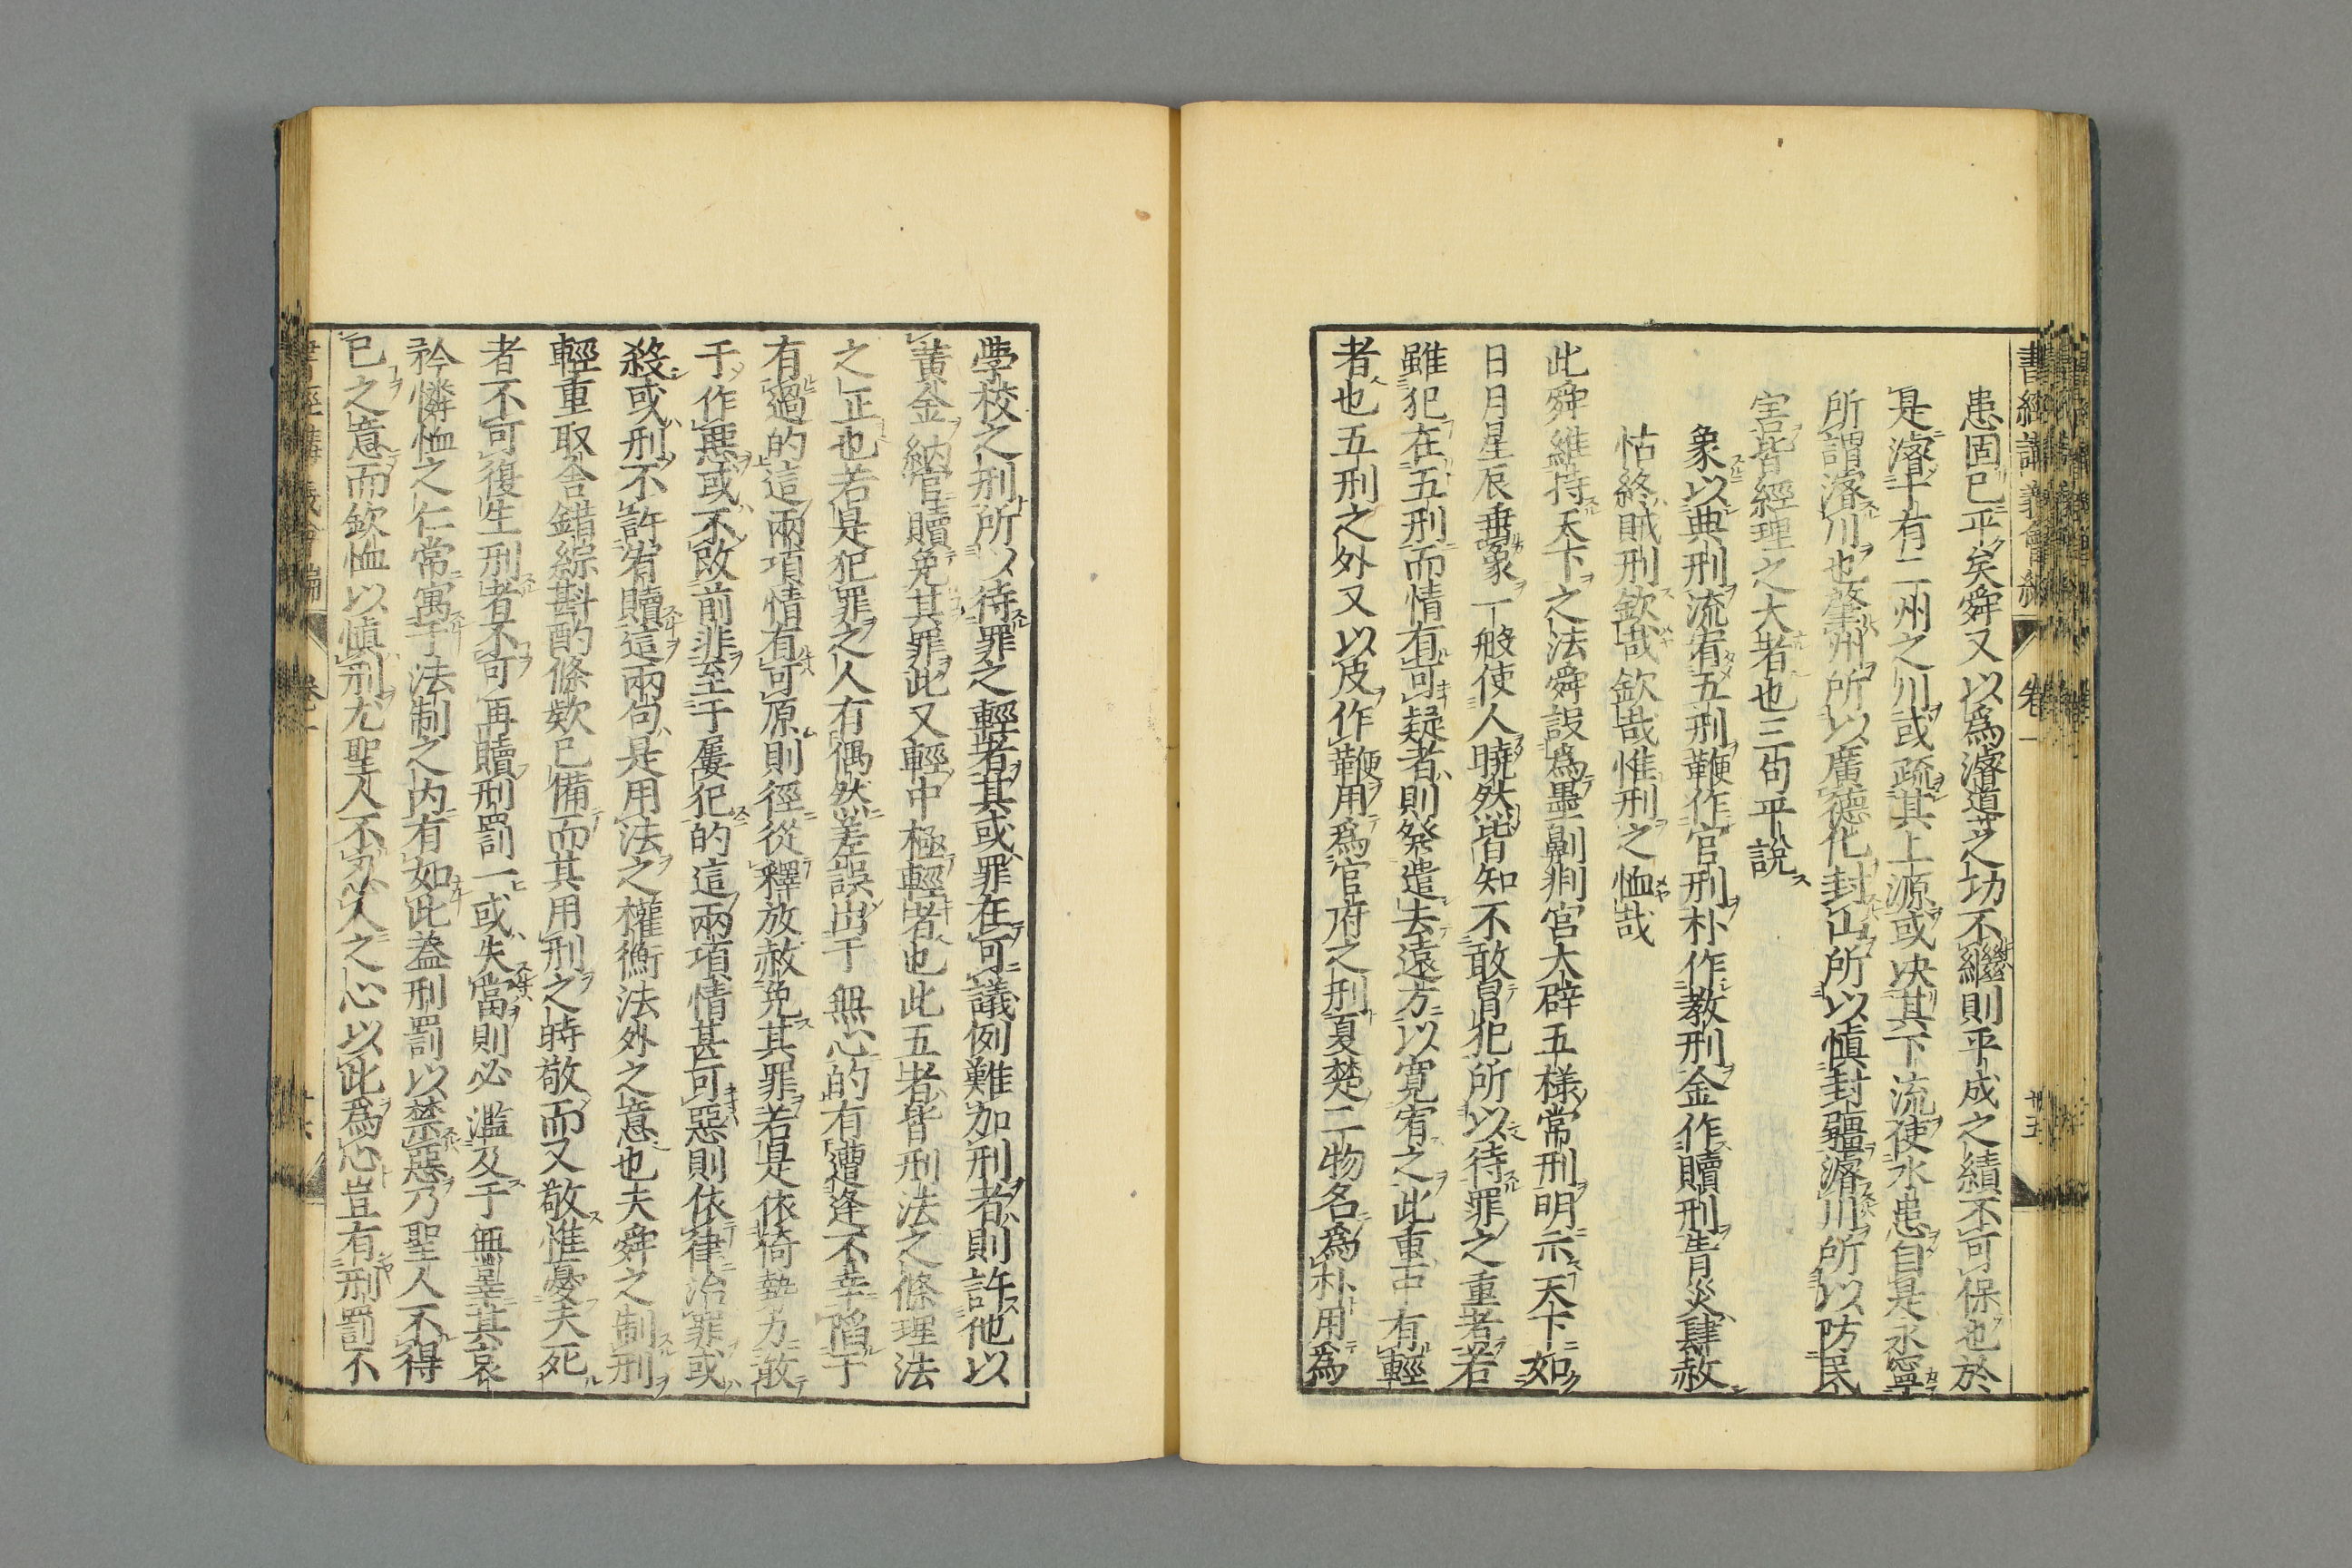 書經講義會編 卷一 卅五
患固已平矣舜又以爲濬道之功不繼則平成之績不可保也於
是濬十有二州之川或疏其上源或决其下流使水患自是永寧
所謂濬川也肇州所以廣德化封山所以慎封疆濬川所以防民
害皆經理之大者也三句平說
象以典刑流宥五刑鞭作官刑朴作教刑金作贖刑眚災肆赦
怙終賊刑欽哉欽哉惟刑之恤哉
此舜維持天下之法舜設爲墨劓剕宮大辟五樣常刑明示天下如
日月星辰垂象一般使人曉然皆知不敢冒犯所以待罪之重者若
雖犯在五刑而情有可疑者則發遣去遠方以寬宥之此重中有輕
者也五刑之外又以皮作鞭用爲官府之刑夏楚二物名爲朴用爲
學校之刑所以待罪之輕者其或罪在可議例難加刑者則許他以
黃金納官贖免其罪此又輕中極輕者也此五者皆刑法之條理法
之正也若是犯罪之人有偶然差誤出于無心的有遭逢不幸陷于
有過的這兩項情有可原則徑從釋放赦免其罪若是依倚勢力敢
于作惡或不改前非至于屢犯的這兩項情甚可惡則依律治罪或
殺或刑不許宥贖這兩句是用法之權衡法外之意也夫舜之制刑
輕重取舍錯綜斟酌條欵已備而其用刑之時敬而又敬惟憂夫死
者不可復生刑者不可再贖刑罰一或失當則必濫及于無辜其哀
矜憐恤之仁常寓于法制之内有如此葢刑罰以禁惡乃聖人不得
已之意而欽恤以慎刑尤聖人不忍人之心以此爲心豈有刑罰不
書經講義會編 卷一